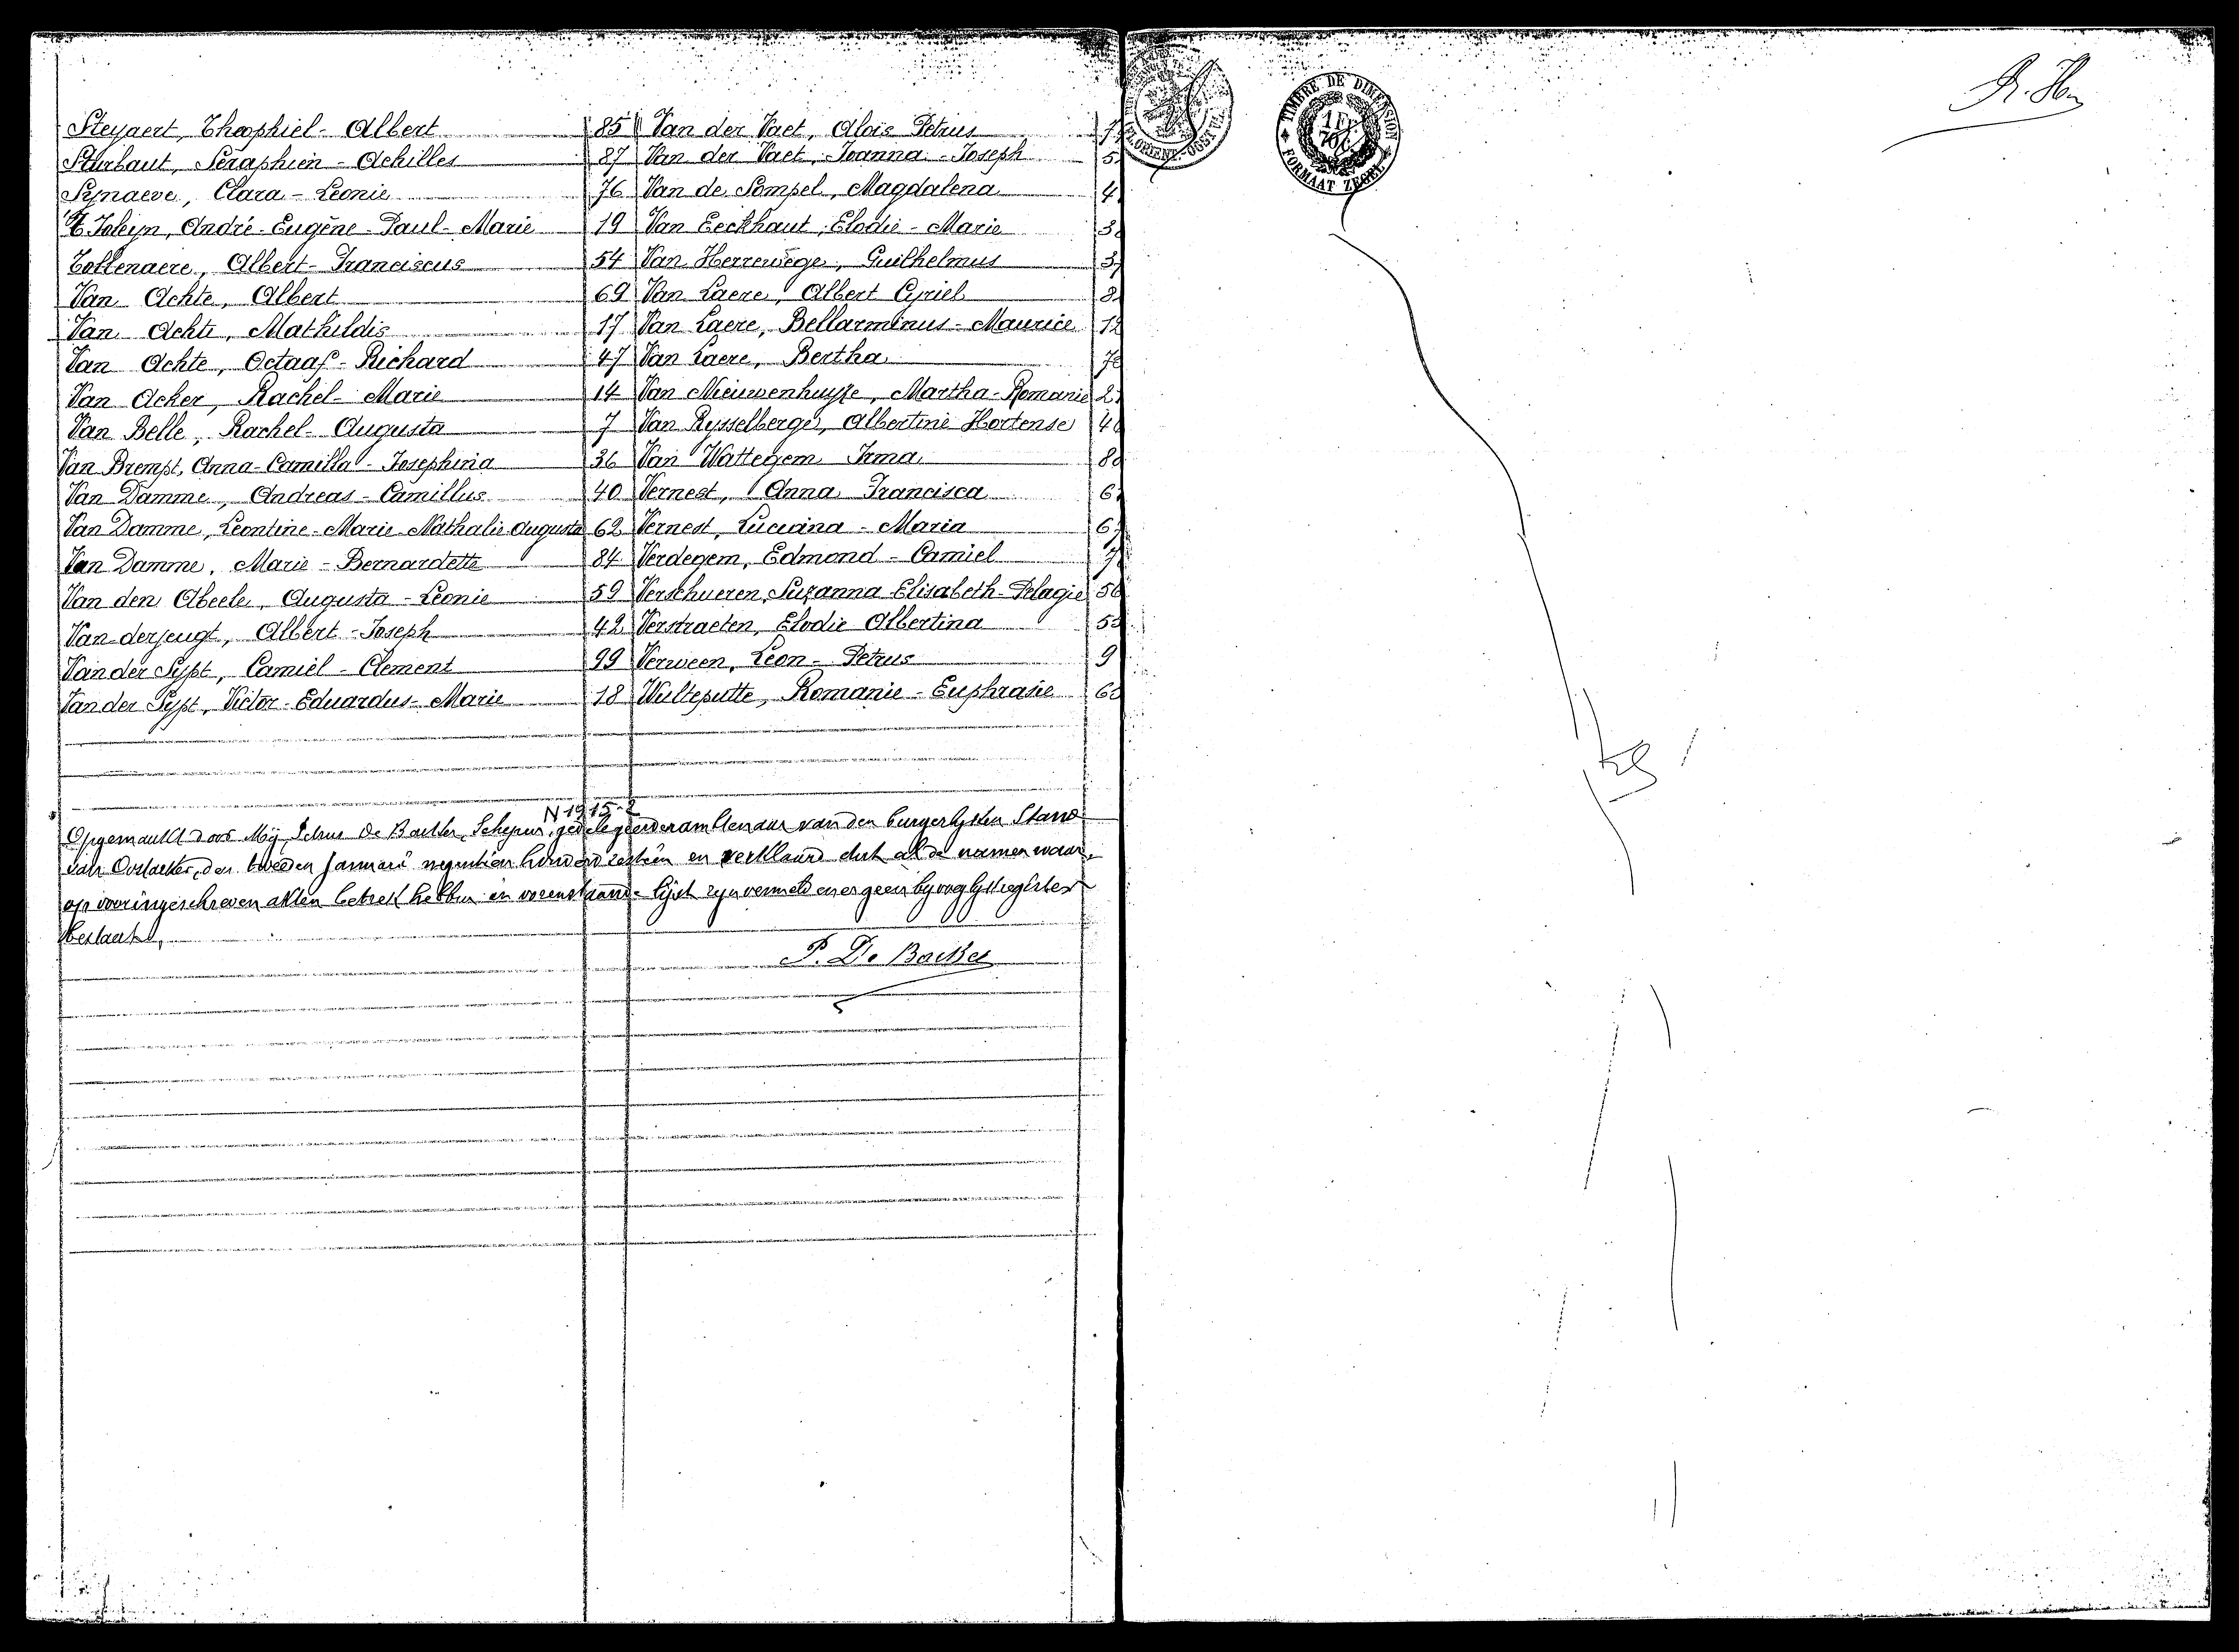 Steyaert, Theophiel - Albert 85
Sturbaut, Seraphien - Achilles 87
Synaeve, Clara - Leonie 76
André - Eugène - Paul - Marie 19
Tollenaere, Albert - Franciscus 54
Van Achte, Albert 69
Van Achte, Mathildis 17
Van Achte, Octaaf - Richard 47
Van Acker, Rachel - Marie 14
Van Belle, Rachel - Augusta 7
Van Brempt, Anna - Camilla - Josephina 36
Van Damme, Andreas - Camillus 40
Van Damme, Leontine - Marie - Nathalie Augusta 62
Van Damme, Marie - Bernardette 84
Van den Abeele, Augusta - Leonie 59
Van derjeugt, Albert - Joseph 42
Van der Sypt, Camiel - Clement 99
Van der Sypt, Victor - Eduardus - Marie 18
Van der Vaet, Aloïs Petrus
Van der Vaet, Joanna - Joseph
Van de Sompel, Magdalena
Van Eeckhaut, Elodie - Marie
Van Herrewege, Guilhelmus
Van Laere, Albert Cyriel
Van Laere, Bellarminus - Maurice
Van Laere, Bertha
Van Nieuwenhuyse, Martha - Romanie
Van Rysselberge, Albertine Hortense
Van Wattegem Irma
Vernest, Anna Francisca
Vernest, Luciana - Maria
Verdegem, Edmond - Camiel
Verschueren, Suzanna Elisabeth - Pelagie
Verstraeten, Elodie Albertina
Verween, Leon - Petrus 9
Wulteputte, Romanie - Euphrasie
N 1915-2
Opgemaakt door Mij, Petrus De Backer, Schepen, gedelegeerder ambtenaar van den burgerlyken Stand
van Oostacker, den tweeden Januari negentien honderd zestien en verklaard dat al de namen waar
op voeringeschreven akten betrek hebben in voenstaande lijst zyn vermeld en er geen byvoeglyk register
bestaat.
P. De Backer
TIMBRE DE DIMENSION
1 Fr
70 C
FORMAAT ZEGEL